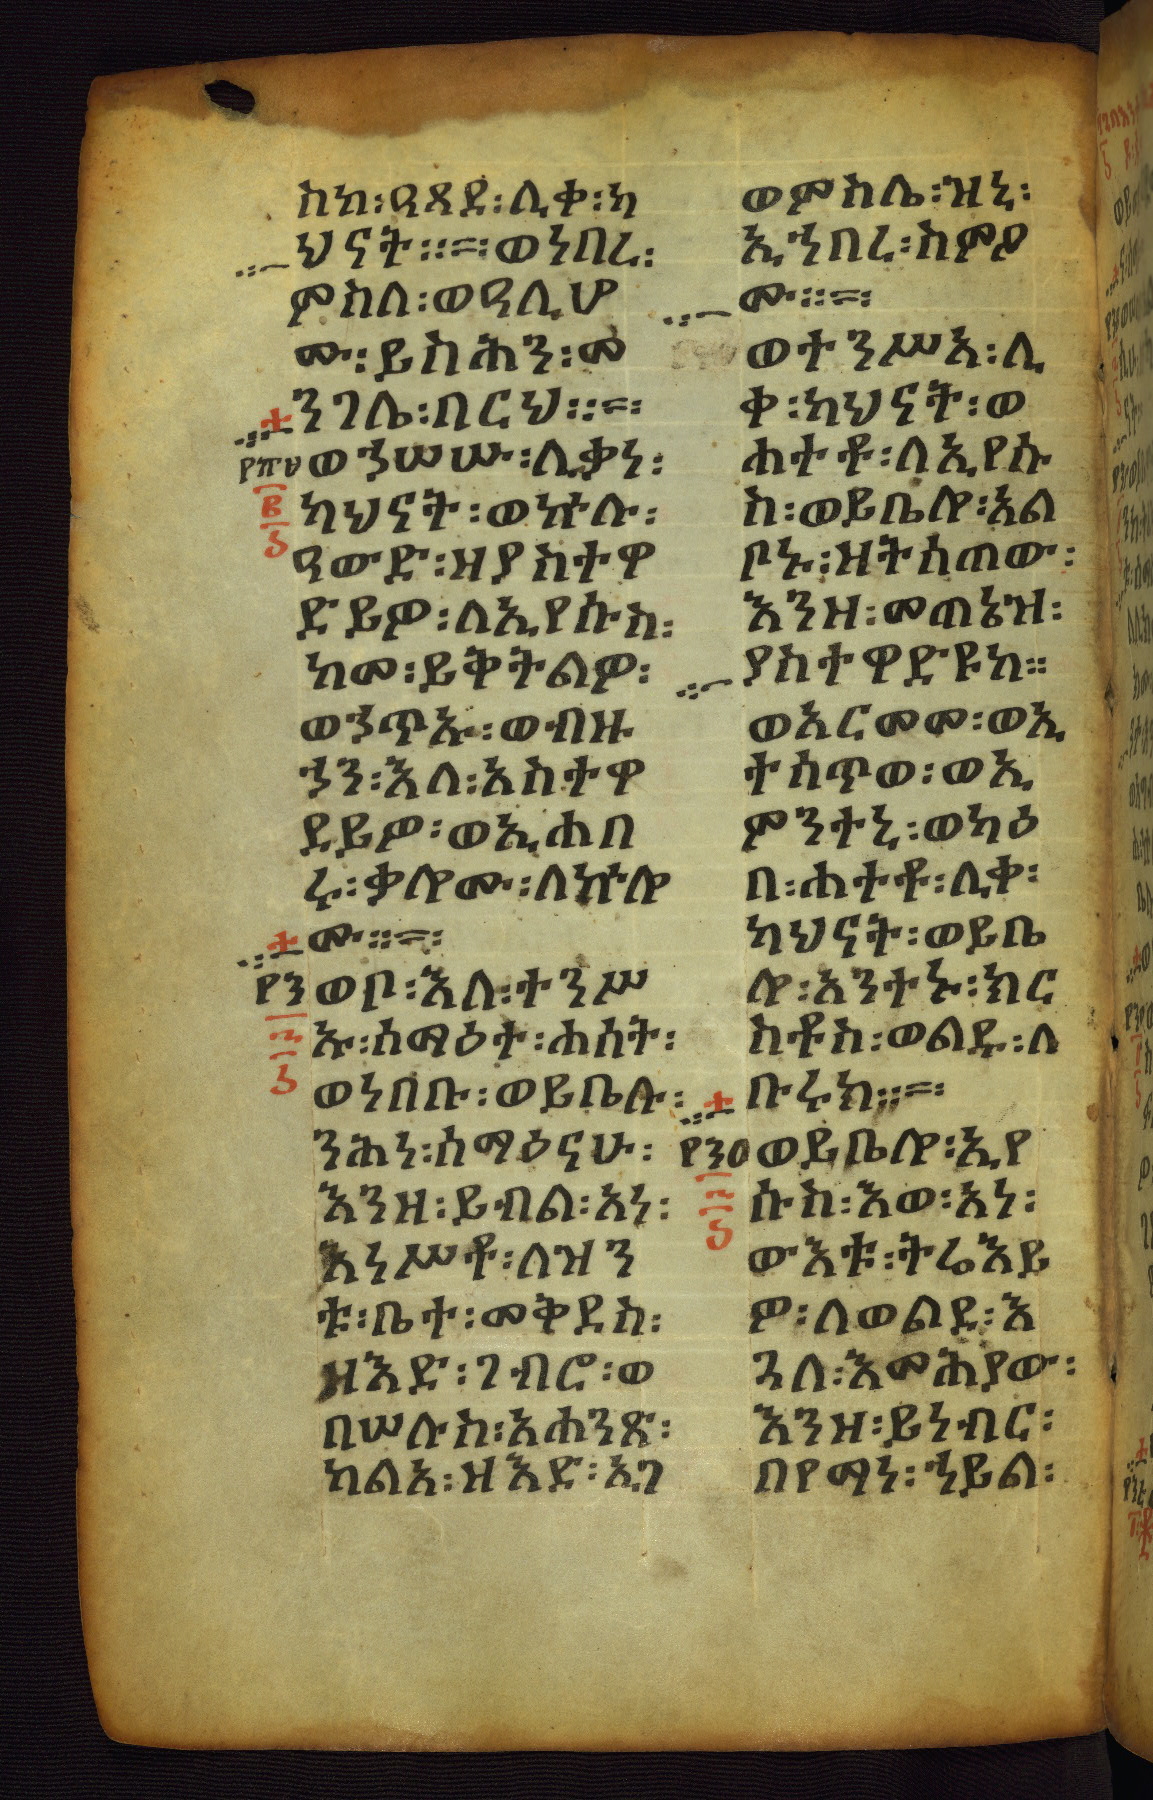 ስከ፡ዓጸደ፡ሊቀ፡ካ
ህናት፡፡=፡ወነበረ፡
ምስለ፡ወዓሊሆ
ሙ፡ይስሕን፡መ
ንገሌ፡በርህ፡፡=፡
ወኀሠሡ፡ሊቃነ፡
ካህናት፡ወኵሉ፡
ዓውድ፡ዘያስተዋ
ድይዎ፡ለኢየሱስ፡
ከመ፡ይቅትልዎ፡
ወኀጥኡ፡ወብዙ
ኃን፡እለ፡አስተዋ
ደይዎ፡ወኢሐበ
ሩ፡ቃሎሙ፡ለኵሎ
ሙ፡፡=፡
ወቦ፡እለ፡ተንሥ
ኡ፡ሰማዕተ፡ሐሰት፡
ወነበቡ፡ወይቤሉ፡
ንሕነ፡ሰማዕናሁ፡
እንዘ፡ይብል፡አነ፡
እነሥቶ፡ለዝን
ቱ፡ቤተ፡መቅደስ፡
ዘእድ፡ገብሮ፡ወ
በሠሉስ፡አሐንጽ፡
ካልአ፡ዘእድ፡ኢገ
ወምስሌ፡ዝኒ፡
ኢኀበረ፡ስምዖ
ሙ፡፡=፡
ወተንሥአ፡ሊ
ቀ፡ካህናት፡ወ
ሐተቶ፡ለኢየሱ
ስ፡ወይቤሎ፡አል
ቦኑ፡ዘትሰጠው፡
እንዘ፡መጠኔዝ፡
ያስተዋድዩከ፡፡
ወአርመመ፡ወኢ
ተሰጥወ፡ወኢ
ምንተኒ፡ወካዕ
በ፡ሐተቶ፡ሊቀ፡
ካህናት፡ወይቤ
ሎ፡አንተኑ፡ክር
ስቶስ፡ወልዱ፡ለ
ቡሩክ፡፡=፡
ወይቤሎ፡ኢየ
ሱስ፡እወ፡አነ፡
ውእቱ፡ትሬእይ
ዎ፡ለወልደ፡እ
ጓለ፡እመሕያው፡
እንዘ፡ይነብር፡
በየማነ፡ኀይል፡